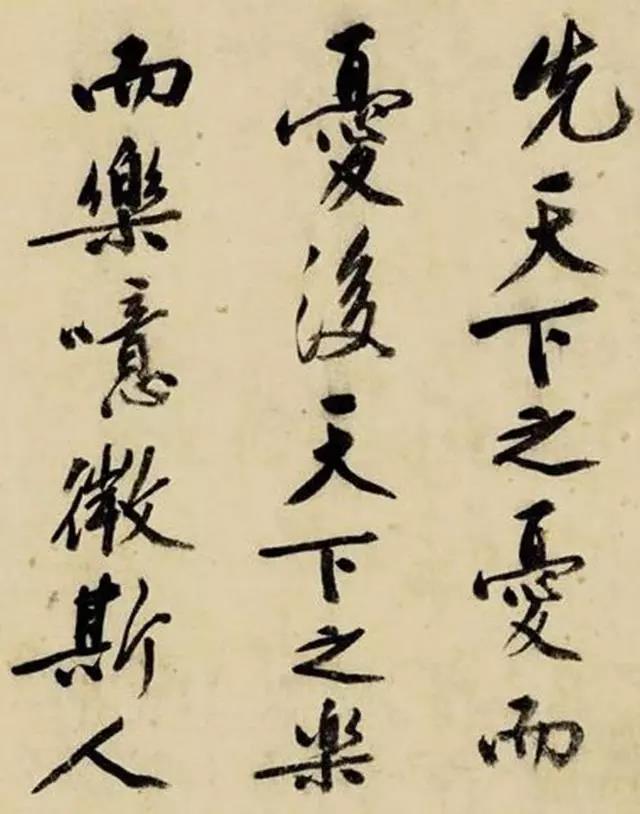 先天下之憂而
憂後天下之樂
而樂噫微斯人